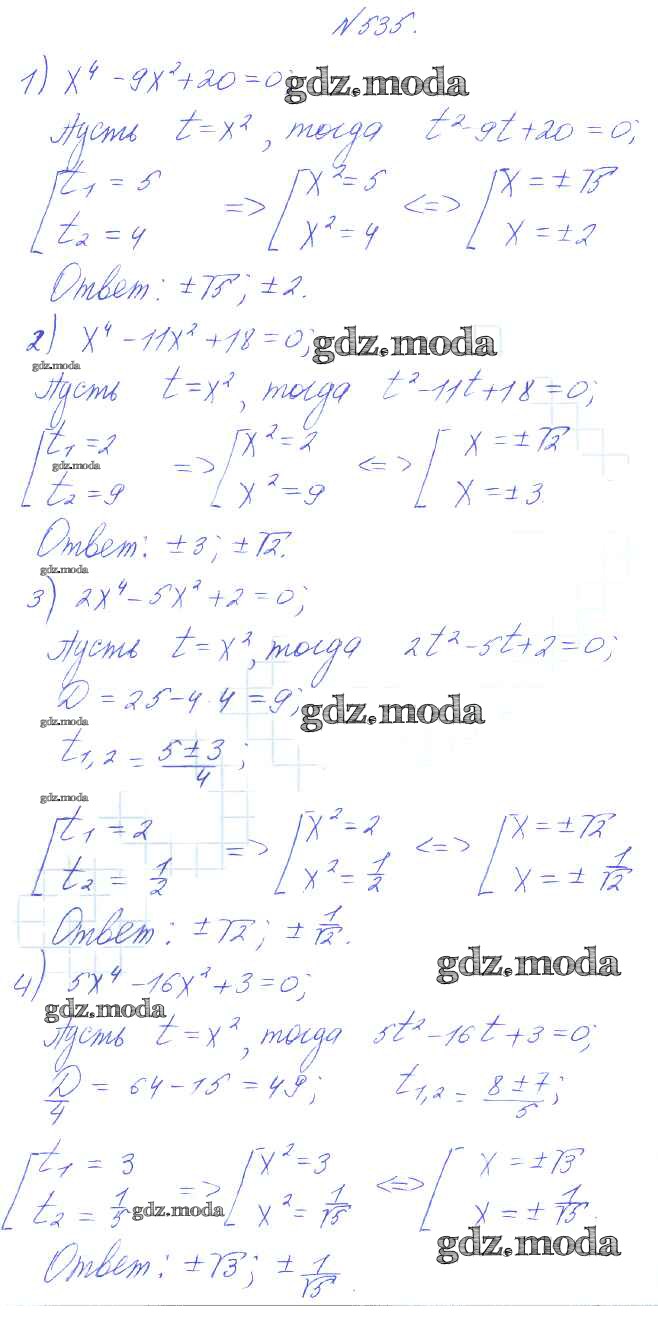 №535.
1) x⁴ - 9x² + 20 = 0; gdz.moda
Пусть t = x², тогда t² - 9t + 20 = 0;
[t₁ = 5 => [x² = 5 <=> [x = ±√5
t₂ = 4 x² = 4 x = ±2
Ответ: ±√5; ±2.
2) x⁴ - 11x² + 18 = 0; gdz.moda
gdz.moda
Пусть t = x², тогда t² - 11t + 18 = 0;
[t₁ = 2 => [x² = 2 <=> [x = ±√2
gdz.moda
t₂ = 9 x² = 9 x = ±3.
Ответ: ±3; ±√2.
gdz.moda
3) 2x⁴ - 5x² + 2 = 0;
Пусть t = x², тогда 2t² - 5t + 2 = 0;
D = 25 - 4·4 = 9; gdz.moda
gdz.moda
t₁,₂ = (5 ± 3)/4;
gdz.moda
[t₁ = 2 => [x² = 2 <=> [x = ±√2
t₂ = 1/2 x² = 1/2 x = ± 1/√2
Ответ: ±√2; ± 1/√2.
gdz.moda
4) 5x⁴ - 16x² + 3 = 0;
gdz.moda
Пусть t = x², тогда 5t² - 16t + 3 = 0;
D/4 = 64 - 15 = 49; t₁,₂ = (8 ± 7)/5;
[t₁ = 3 => [x² = 3 <=> [x = ±√3
t₂ = 1/5 gdz.moda x² = 1/√5 x = ± 1/√5.
gdz.moda
Ответ: ±√3; ± 1/√5.